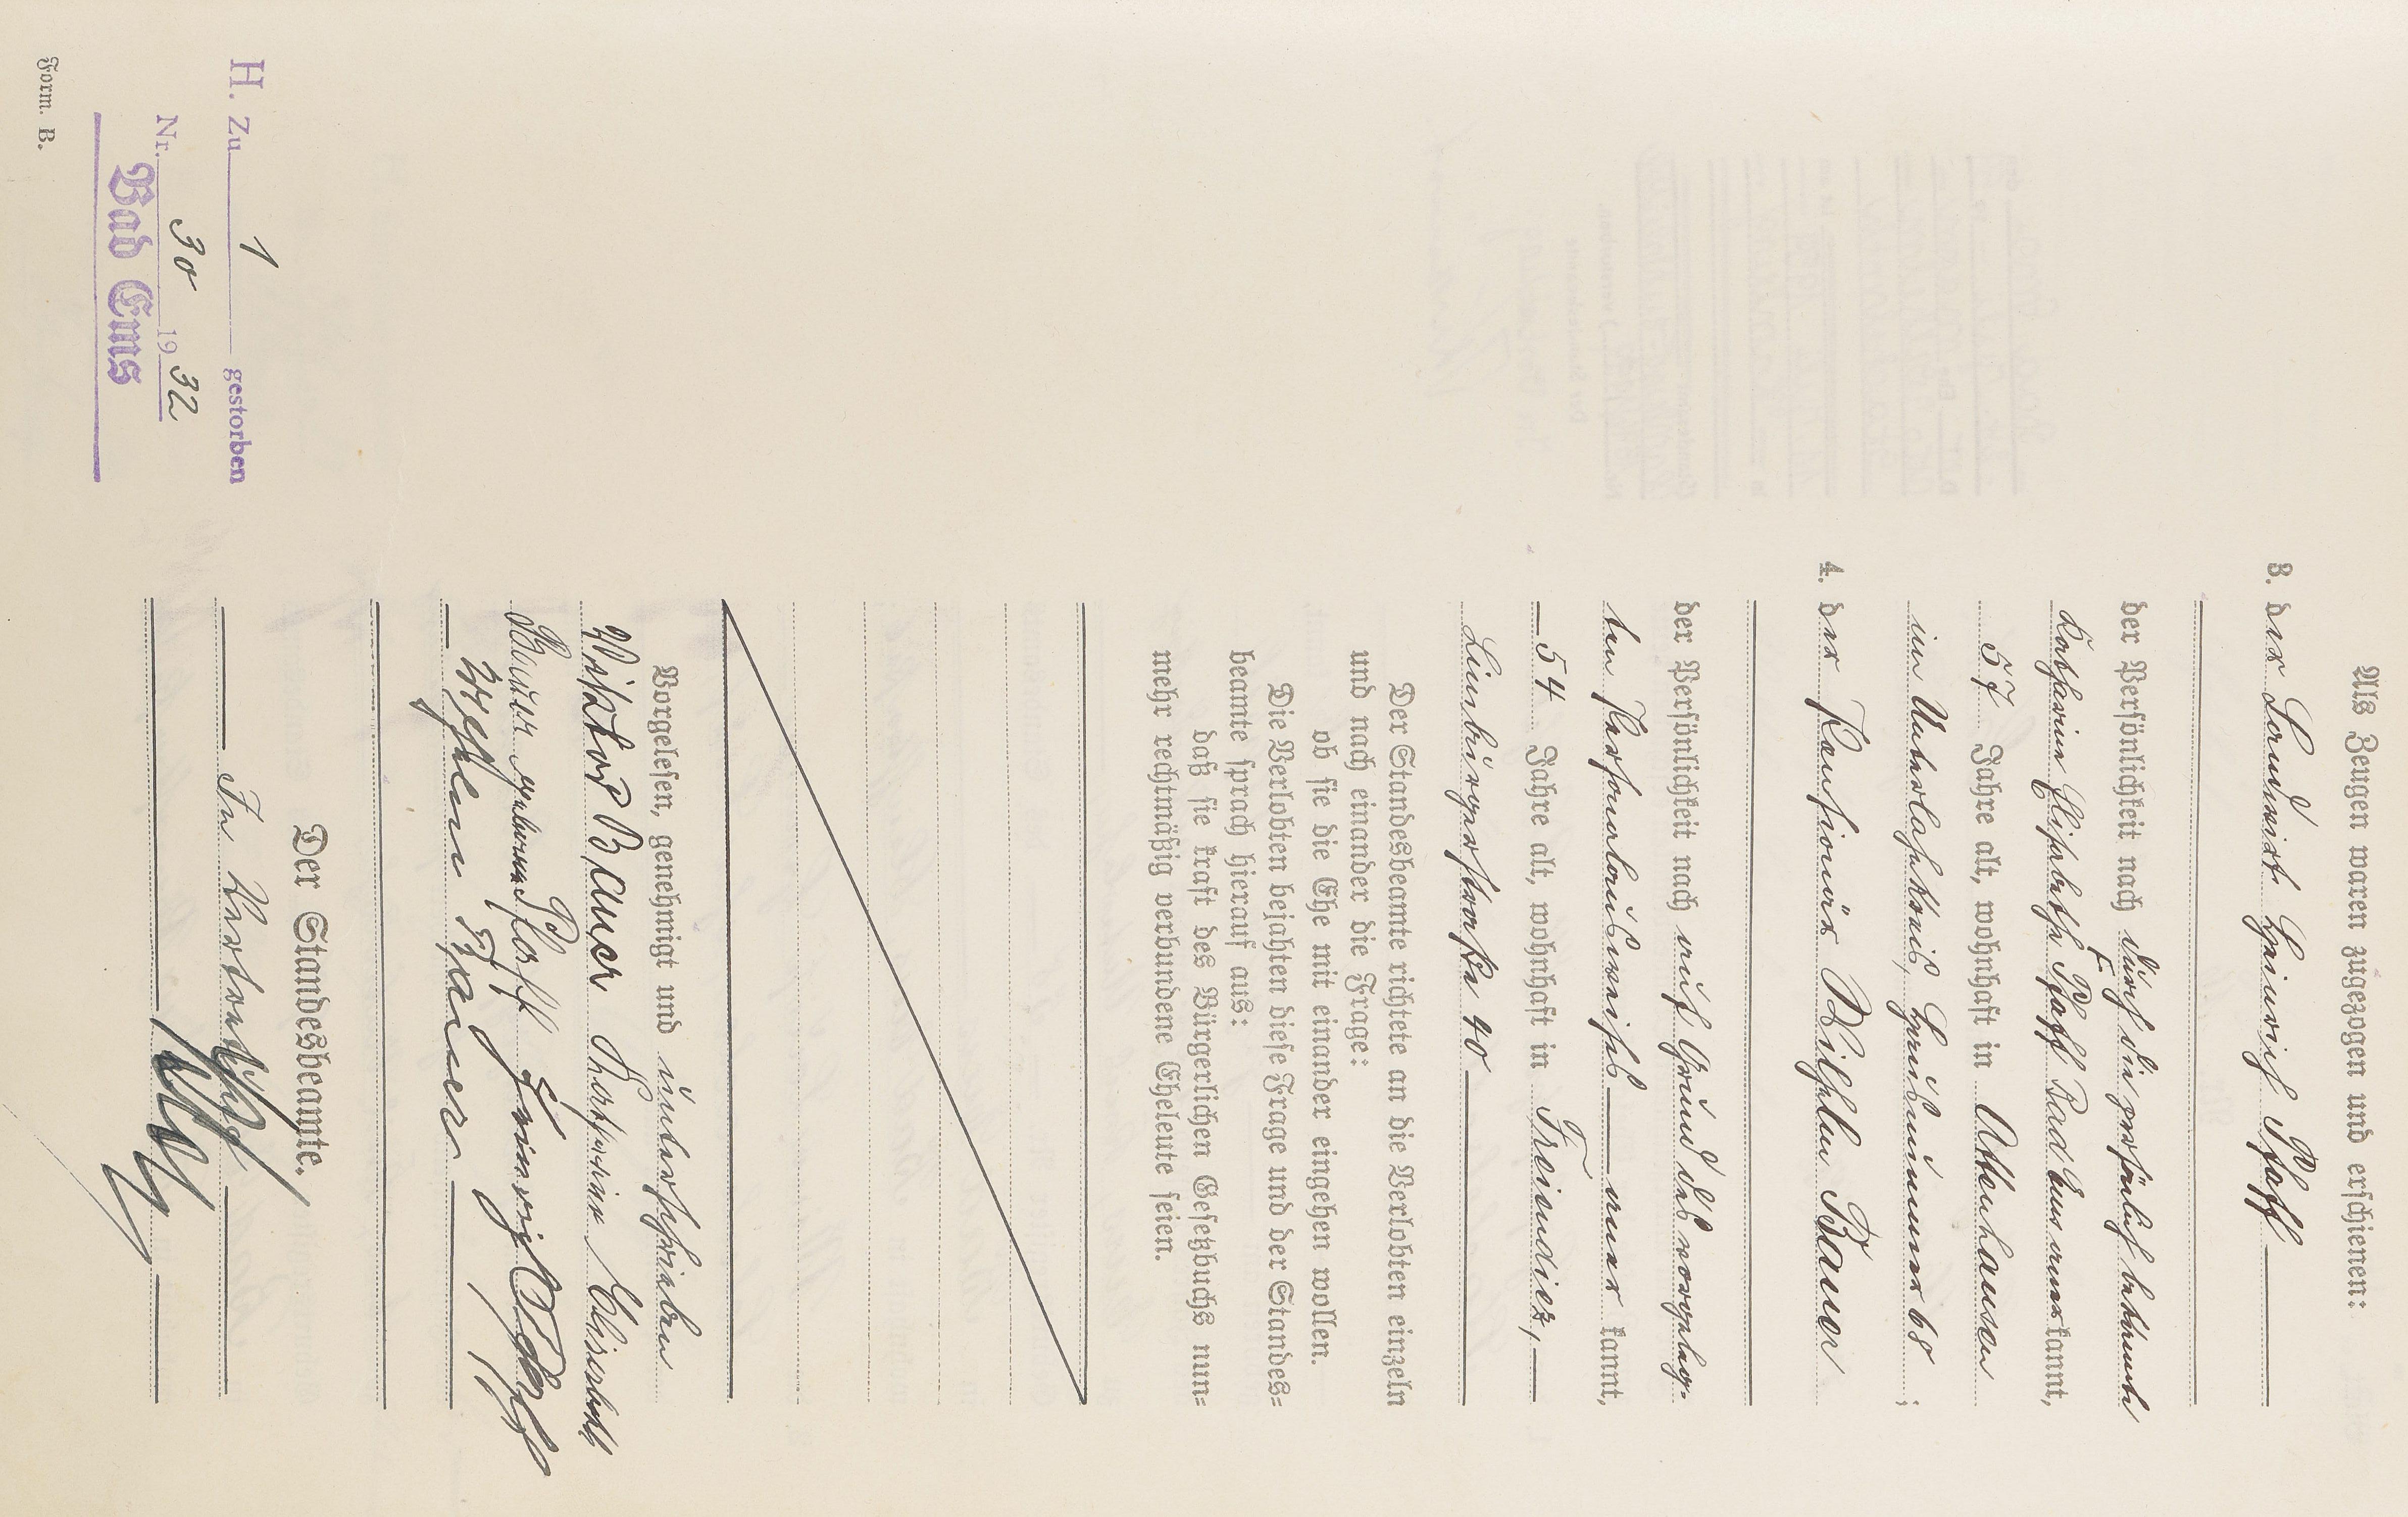 Als Zeugen waren zugezogen und erschienen:
3. der Landwirt Heinrich Pfaff
der Persönlichkeit nach durch die persönlich bekannte
Katharina Elisabeth Pfaff Bad Ems anerkannt,
57 Jahre alt, wohnhaft in Attenhausen
im Unterlahnkreis, Hausnummer 68;
4. der Pensionär Wilhelm Bauer
der Persönlichkeit nach auf Grund des vorgeleg-
ten Personalausweises anerkannt,
54 Jahre alt, wohnhaft in Freiendiez,
Limburgerstraße 40
Der Standesbeamte richtete an die Verlobten einzeln
und nach einander die Frage:
ob sie die Ehe mit einander eingehen wollen.
Die Verlobten bejahten diese Frage und der Standes=
beamte sprach hierauf aus:
daß sie kraft des Bürgerlichen Gesetzbuchs nun=
mehr rechtmäßig verbundene Eheleute seien.
Vorgelesen, genehmigt und unterschrieben
Bauer Katharina Elisabeth
Bauer geborene Pfaff Heinrich Pfaff
Wilhelm Bauer
Der Standesbeamte.
In Vertretung
H. Zu 1 gestorben
Nr. 30 1932
Bad Ems
Form. B.